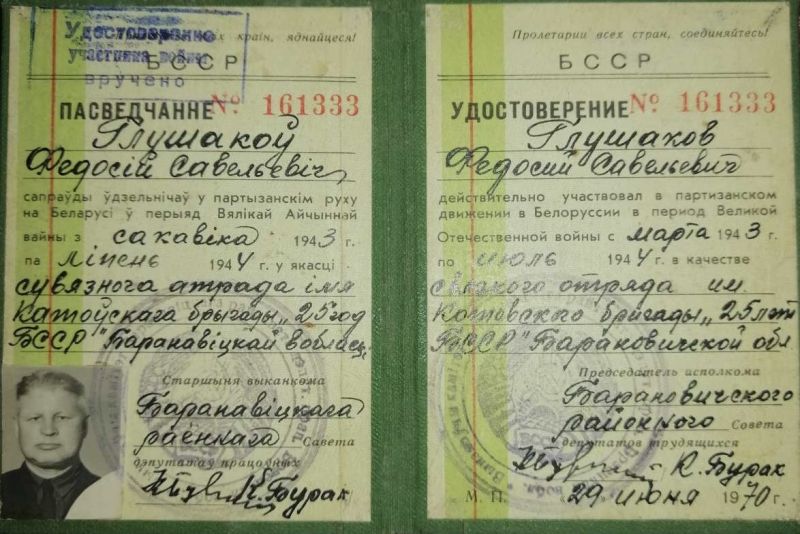 Удостоверение
участника войны
вручено
краін, яднайцеся!
БССР
ПАСВЕДЧАННЕ № 161333
Глушакоў
Федосій Савельевіч
сапраўды ўдзельнічаў у партызанскім руху
на Беларусі ў перыяд Вялікай Айчыннай
вайны з сакавіка 1943 г.
па ліпень 1944 г. у якасці
сувязнога атрада імя
Катоўскага брыгады „25 год
БССР" Баранавіцкай вобласці
Старшыня выканкома
Баранавіцкага
раённага Савета
дэпутатаў працоўных
К. Бурак
Пролетарии всех стран, соединяйтесь!
БССР
УДОСТОВЕРЕНИЕ № 161333
Глушаков
Федосий Савельевич
действительно участвовал в партизанском
движении в Белоруссии в период Великой
Отечественной войны с марта 1943 г.
по июль 1944 г. в качестве
связного отряда им.
Котовского бригады „25 лет
БССР" Барановичской обл
Председатель исполкома
Барановичского
районного Совета
депутатов трудящихся
К. Бурак
М. П. «29» июня 1970 г.